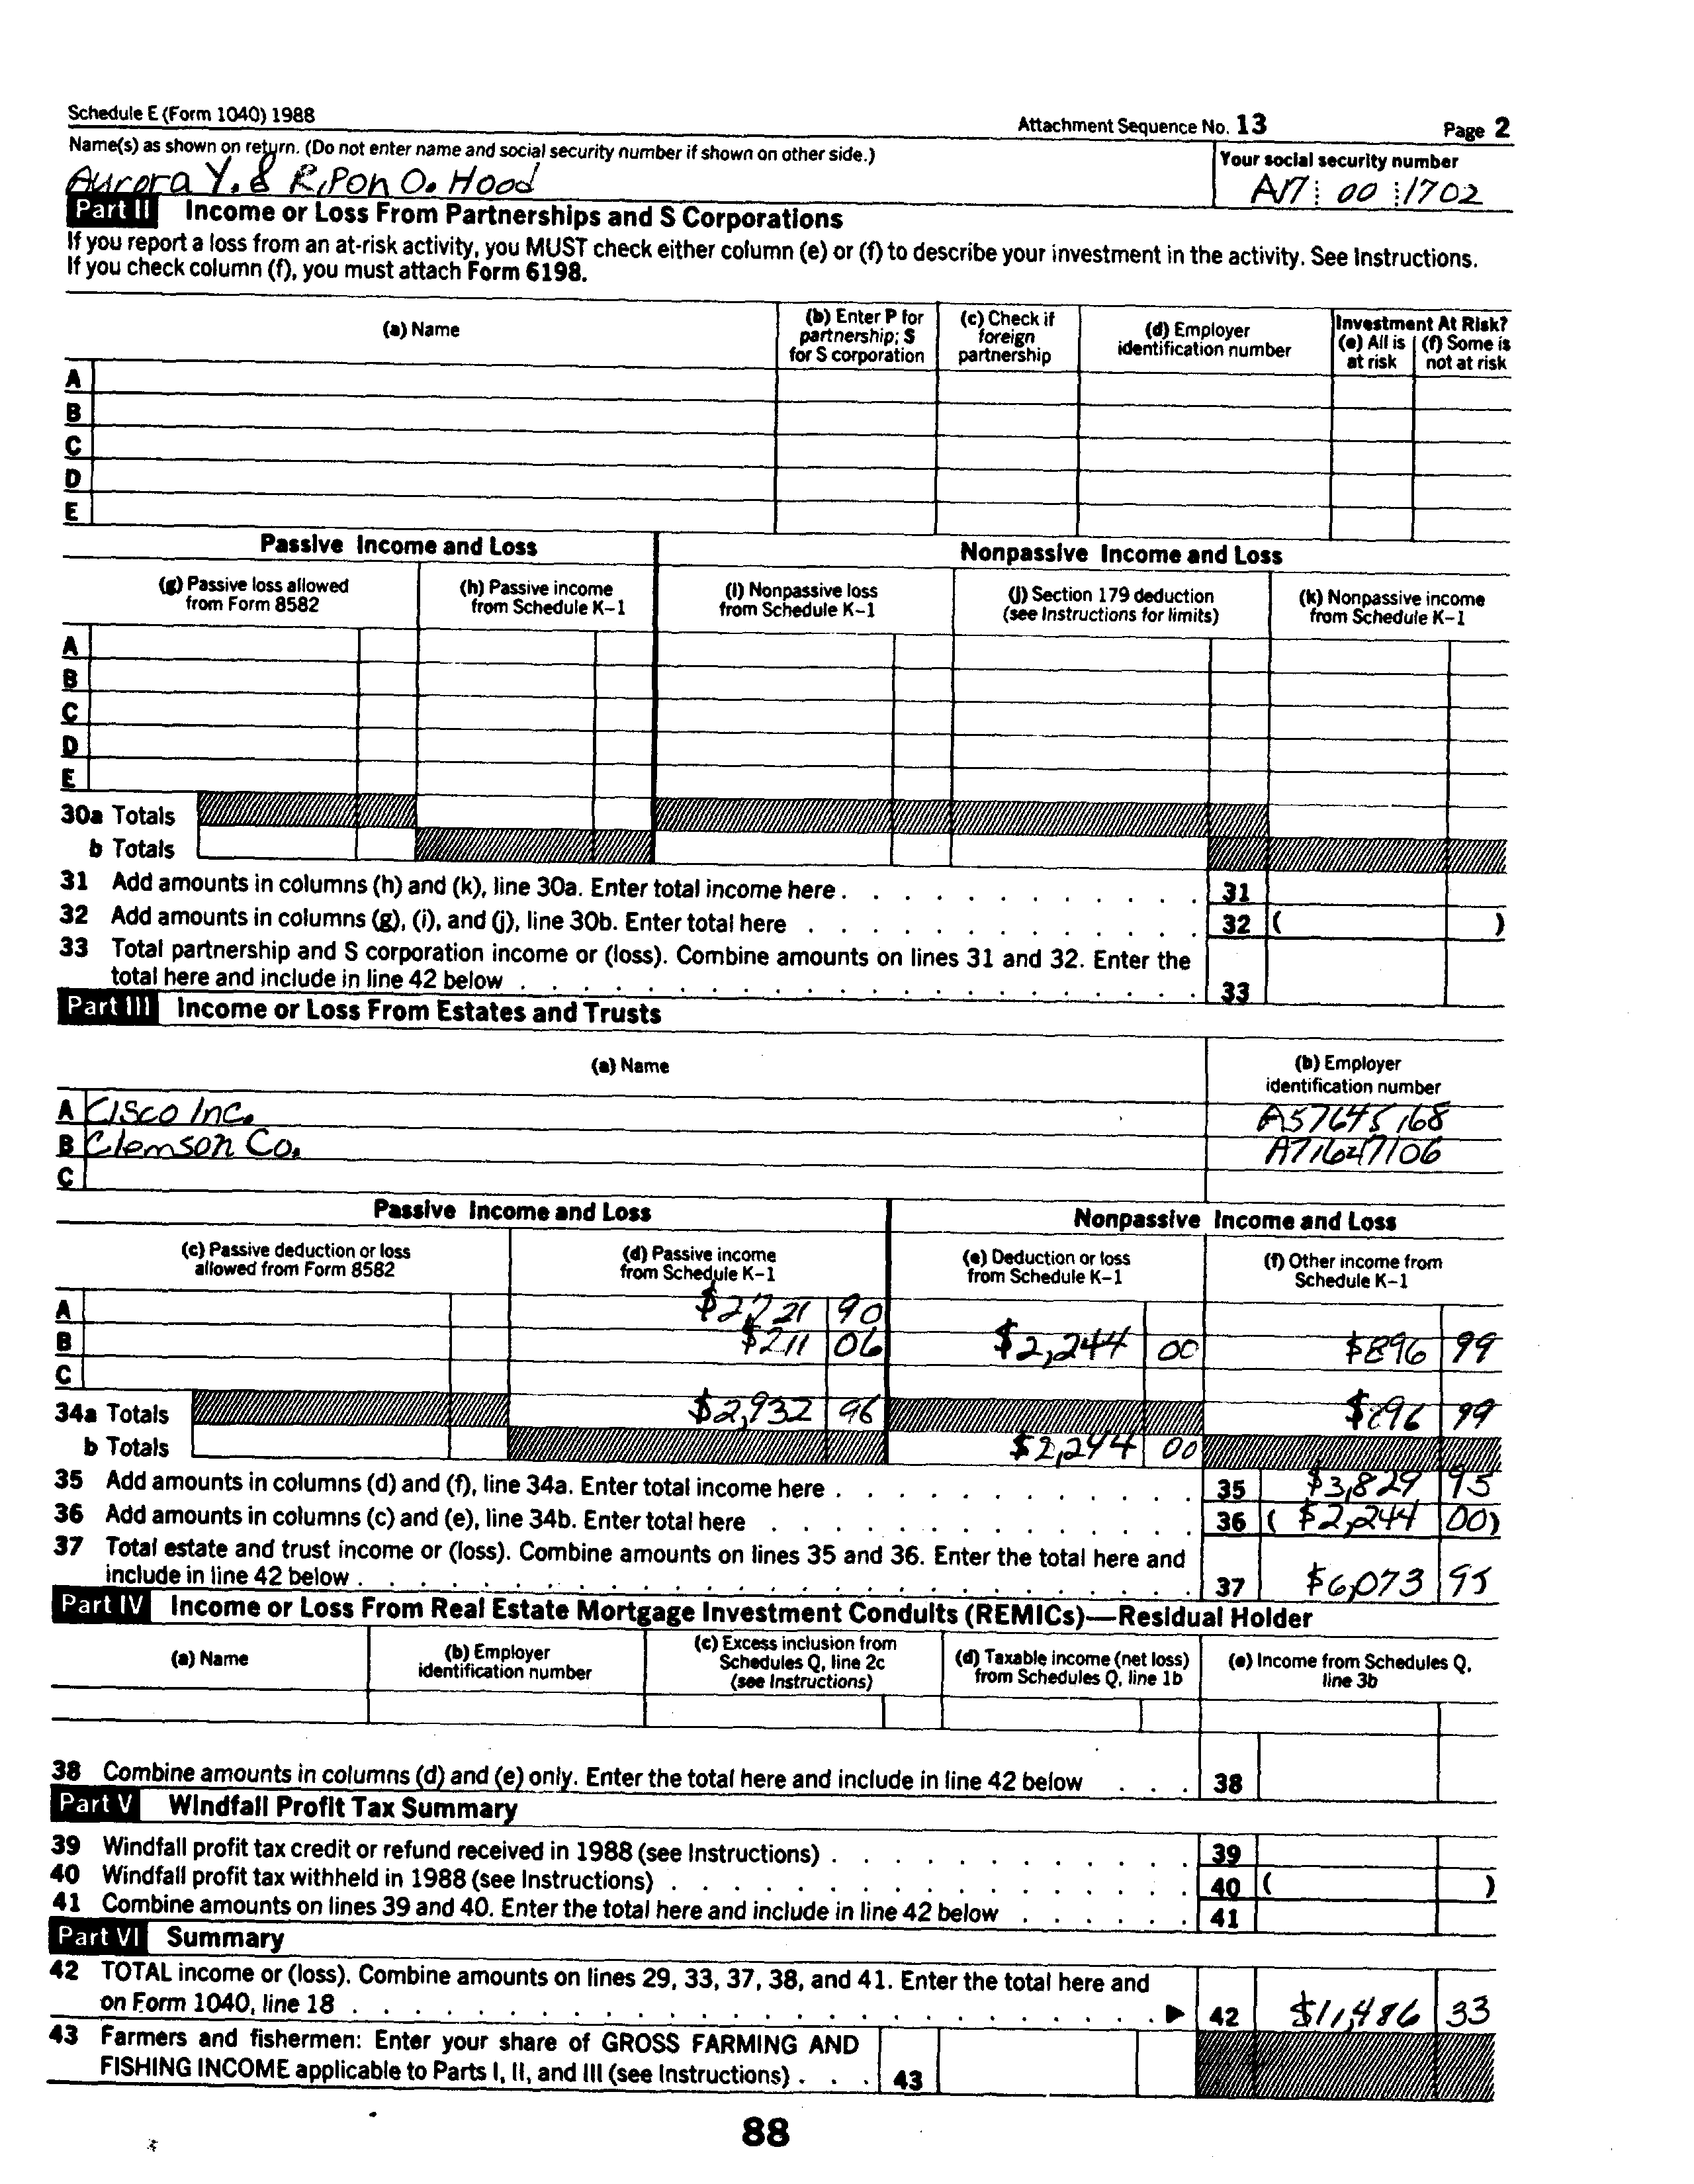 Schedule E (Form 1040) 1988 Attachment Sequence No. 13 Page 2
Name(s) as shown on return. (Do not enter name and social security number if shown on other side.) Your social security number
Aurora Y. & Ripon O. Hood A17 00 1702
Part II Income or Loss From Partnerships and S Corporations
If you report a loss from an at-risk activity, you MUST check either column (e) or (f) to describe your investment in the activity. See Instructions.
If you check column (f), you must attach Form 6198.
(a) Name
(b) Enter P for partnership; S for S corporation
(c) Check if foreign partnership
(d) Employer identification number
Investment At Risk?
(e) All is at risk
(f) Some is not at risk
A
B
C
D
E
Passive Income and Loss Nonpassive Income and Loss
(g) Passive loss allowed from Form 8582
(h) Passive income from Schedule K–1
(i) Nonpassive loss from Schedule K–1
(j) Section 179 deduction (see Instructions for limits)
(k) Nonpassive income from Schedule K–1
A
B
C
D
E
30a Totals
b Totals
31 Add amounts in columns (h) and (k), line 30a. Enter total income here . . . . . . . . . . . . 31
32 Add amounts in columns (g), (i), and (j), line 30b. Enter total here . . . . . . . . . . . . . 32 ( )
33 Total partnership and S corporation income or (loss). Combine amounts on lines 31 and 32. Enter the
total here and include in line 42 below . . . . . . . . . . . . . . . . . . . . . . 33
Part III Income or Loss From Estates and Trusts
(a) Name
(b) Employer identification number
A Cisco Inc. A57645168
B Clemson Co. A71647106
C
Passive Income and Loss Nonpassive Income and Loss
(c) Passive deduction or loss allowed from Form 8582
(d) Passive income from Schedule K–1
(e) Deduction or loss from Schedule K–1
(f) Other income from Schedule K–1
A $2,721 90
B $211 06 $2,244 00 $896 99
C
34a Totals $2,932 96 $896 99
b Totals $2,244 00
35 Add amounts in columns (d) and (f), line 34a. Enter total income here . . . . . . . . . . . . 35 $3,829 95
36 Add amounts in columns (c) and (e), line 34b. Enter total here . . . . . . . . . . . . . . 36 ( $2,244 00)
37 Total estate and trust income or (loss). Combine amounts on lines 35 and 36. Enter the total here and
include in line 42 below . . . . . . . . . . . . . . . . . . . . . . . . . . . 37 $6,073 95
Part IV Income or Loss From Real Estate Mortgage Investment Conduits (REMICs)—Residual Holder
(a) Name
(b) Employer identification number
(c) Excess inclusion from Schedules Q, line 2c (see Instructions)
(d) Taxable income (net loss) from Schedules Q, line 1b
(e) Income from Schedules Q, line 3b
38 Combine amounts in columns (d) and (e) only. Enter the total here and include in line 42 below . . . 38
Part V Windfall Profit Tax Summary
39 Windfall profit tax credit or refund received in 1988 (see Instructions) . . . . . . . . . . . . 39
40 Windfall profit tax withheld in 1988 (see Instructions) . . . . . . . . . . . . . . . . . 40 ( )
41 Combine amounts on lines 39 and 40. Enter the total here and include in line 42 below . . . . . . 41
Part VI Summary
42 TOTAL income or (loss). Combine amounts on lines 29, 33, 37, 38, and 41. Enter the total here and
on Form 1040, line 18 . . . . . . . . . . . . . . . . . . . . . . . . . . ▶ 42 $11,486 33
43 Farmers and fishermen: Enter your share of GROSS FARMING AND
FISHING INCOME applicable to Parts I, II, and III (see Instructions) . . . 43
88